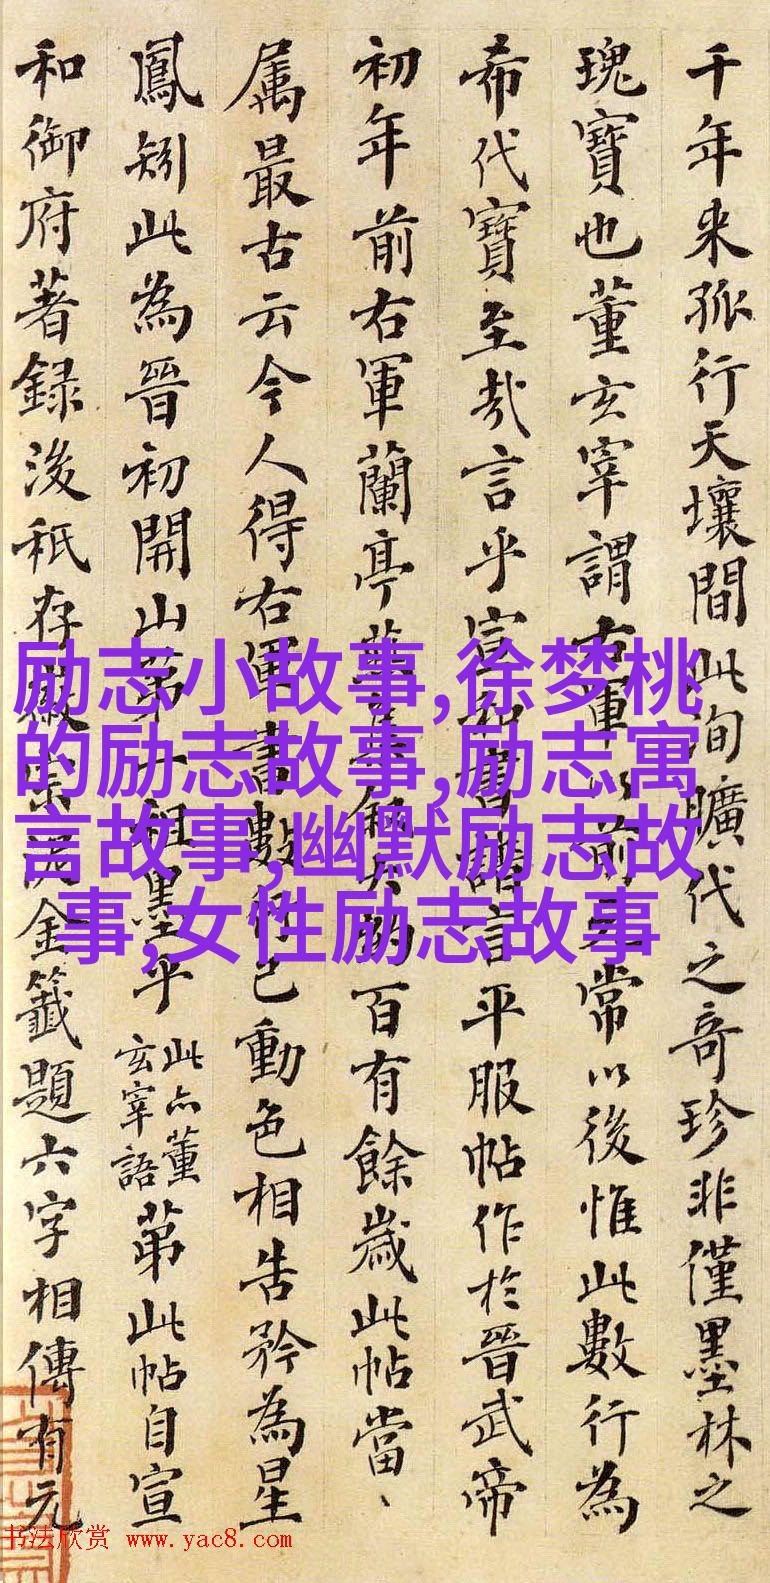 千年来孤行天壤間此洵曠代之奇珍非僅墨林之
瑰寶也董玄宰謂右軍以前元常以後惟此數行為
希代寶至哉言乎宣和書譜言平服帖作於晉武帝
初年前右軍蘭亭集叙大約百有餘歲此帖當、
属最古云今人得右軍書數行已動色相告矜為星
鳳矧此為晉初開山第一祖墨乎
此亦董
玄宰語
第此帖自宣
和御府著録後秖存徽宗泥金籤題六字相傳有元
励志小故事,徐梦桃
的励志故事,励志寓
言故事,幽默励志故
事,女性励志故事
书法欣赏 www.yac8.com